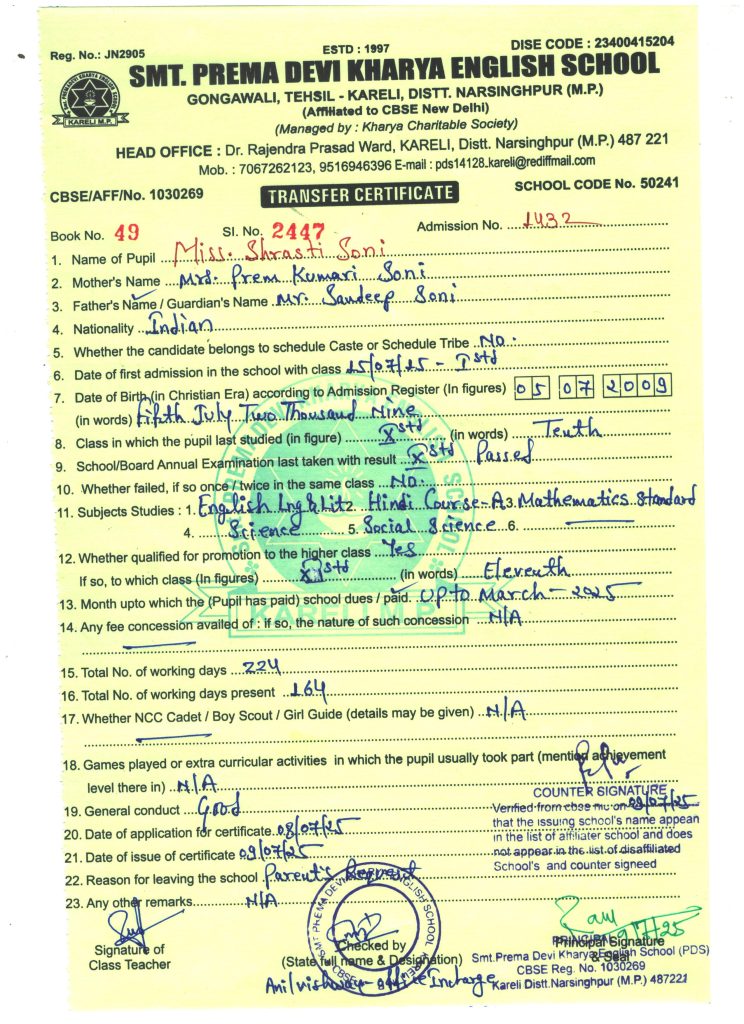 Reg. No.: JN2905
ESTD : 1997
DISE CODE : 23400415204
SMT. PREMA DEVI KHARYA ENGLISH SCHOOL
GONGAWALI, TEHSIL - KARELI, DISTT. NARSINGHPUR (M.P.)
(Affiliated to CBSE New Delhi)
(Managed by : Kharya Charitable Society)
KARELI M.P.
HEAD OFFICE : Dr. Rajendra Prasad Ward, KARELI, Distt. Narsinghpur (M.P.) 487 221
Mob. : 7067262123, 9516946396 E-mail : pds14128.kareli@rediffmail.com
CBSE/AFF/No. 1030269
TRANSFER CERTIFICATE
SCHOOL CODE No. 50241
Book No. 49 Sl. No. 2447 Admission No. 1432
1. Name of Pupil Miss. Shrasti Soni
2. Mother's Name Mrs. Prem Kumari Soni
3. Father's Name / Guardian's Name Mr. Sandeep Soni
4. Nationality Indian
5. Whether the candidate belongs to schedule Caste or Schedule Tribe No.
6. Date of first admission in the school with class 25/07/25 - I std
7. Date of Birth (in Christian Era) according to Admission Register (In figures) 05 07 2009
(in words) Fifth July Two Thousand Nine
8. Class in which the pupil last studied (in figure) X std (in words) Tenth
9. School/Board Annual Examination last taken with result X std Passed
10. Whether failed, if so once / twice in the same class No.
11. Subjects Studies : 1. English Lng & Lit 2. Hindi Course-A 3. Mathematics Standard
4. Science 5. Social Science 6.
12. Whether qualified for promotion to the higher class Yes
If so, to which class (In figures) XI std (in words) Eleventh
13. Month upto which the (Pupil has paid) school dues / paid Upto March - 2025
14. Any fee concession availed of : If so, the nature of such concession N/A
15. Total No. of working days 224
16. Total No. of working days present 164
17. Whether NCC Cadet / Boy Scout / Girl Guide (details may be given) N/A
18. Games played or extra curricular activities in which the pupil usually took part (mention achievement
level there in) N/A
COUNTER SIGNATURE
19. General conduct Good
Verified from cbse mu on 09/07/25
that the issuing school's name appean
in the list of affiliater school and does
not appear in the list of disaffiliated
School's and counter signeed
20. Date of application for certificate 08/07/25
21. Date of issue of certificate 09/07/25
22. Reason for leaving the school Parent's Request
23. Any other remarks N/A
Signature of
Class Teacher
Checked by
(State full name & Designation)
Anil vishwa office Incharge
SMT PREMA DEVI ENGLISH SCHOOL
PRINCIPAL
Principal Signature
& Seal
Smt.Prema Devi Kharya English School (PDS)
CBSE Reg. No. 1030269
Kareli Distt.Narsinghpur (M.P.) 487221